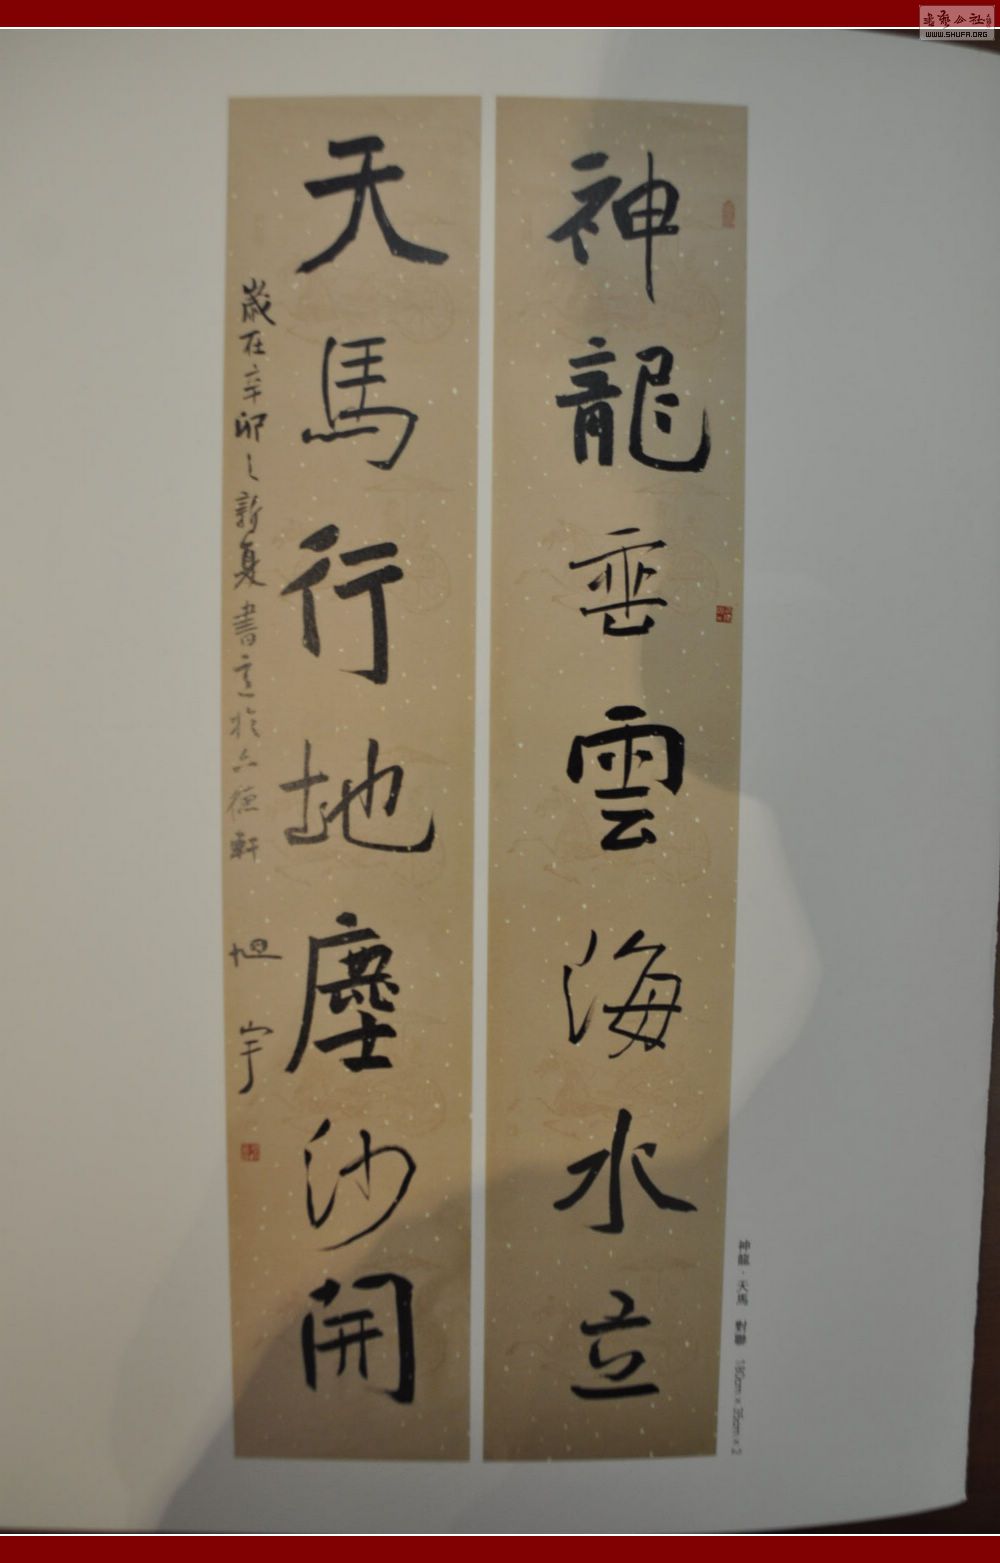 神龍垂雲海水立
天馬行地塵沙開
歲在辛卯之新夏書意於六德軒
旭宇
神龍·天馬 對聯 180cm×35cm×2
WWW.SHUFA.ORG